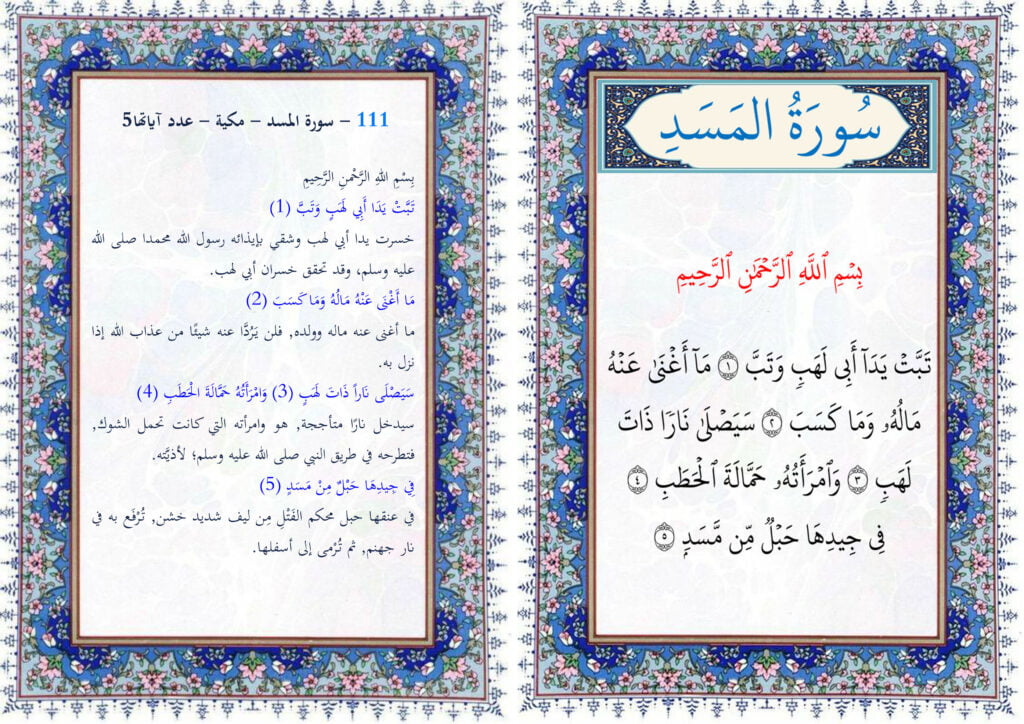 سُورَةُ المَسَدِ
بِسْمِ ٱللَّهِ ٱلرَّحْمَٰنِ ٱلرَّحِيمِ
تَبَّتْ يَدَآ أَبِى لَهَبٍ وَتَبَّ ١ مَآ أَغْنَىٰ عَنْهُ
مَالُهُۥ وَمَا كَسَبَ ٢ سَيَصْلَىٰ نَارًا ذَاتَ
لَهَبٍ ٣ وَٱمْرَأَتُهُۥ حَمَّالَةَ ٱلْحَطَبِ ٤
فِى جِيدِهَا حَبْلٌ مِّن مَّسَدٍۭ ٥
111 – سورة المسد – مكية – عدد آياتها5
بِسْمِ اللهِ الرَّحْمنِ الرَّحِيمِ
تَبَّتْ يَدَا أَبِي لَهَبٍ وَتَبَّ (1)
خسرت يدا أبي لهب وشقي بإيذائه رسول الله محمدا صلى الله
عليه وسلم، وقد تحقق خسران أبي لهب.
مَا أَغْنَى عَنْهُ مَالُهُ وَمَا كَسَبَ (2)
ما أغنى عنه ماله وولده, فلن يَرُدَّا عنه شيئًا من عذاب الله إذا
نزل به.
سَيَصْلَى نَاراً ذَاتَ لَهَبٍ (3) وَامْرَأَتُهُ حَمَّالَةَ الْحَطَبِ (4)
سيدخل نارًا متأججة, هو وامرأته التي كانت تحمل الشوك,
فتطرحه في طريق النبي صلى الله عليه وسلم؛ لأذيَّته.
فِي جِيدِهَا حَبْلٌ مِنْ مَسَدٍ (5)
في عنقها حبل محكم الفَتْلِ مِن ليف شديد خشن, تُرْفَع به في
نار جهنم, ثم تُرْمى إلى أسفلها.